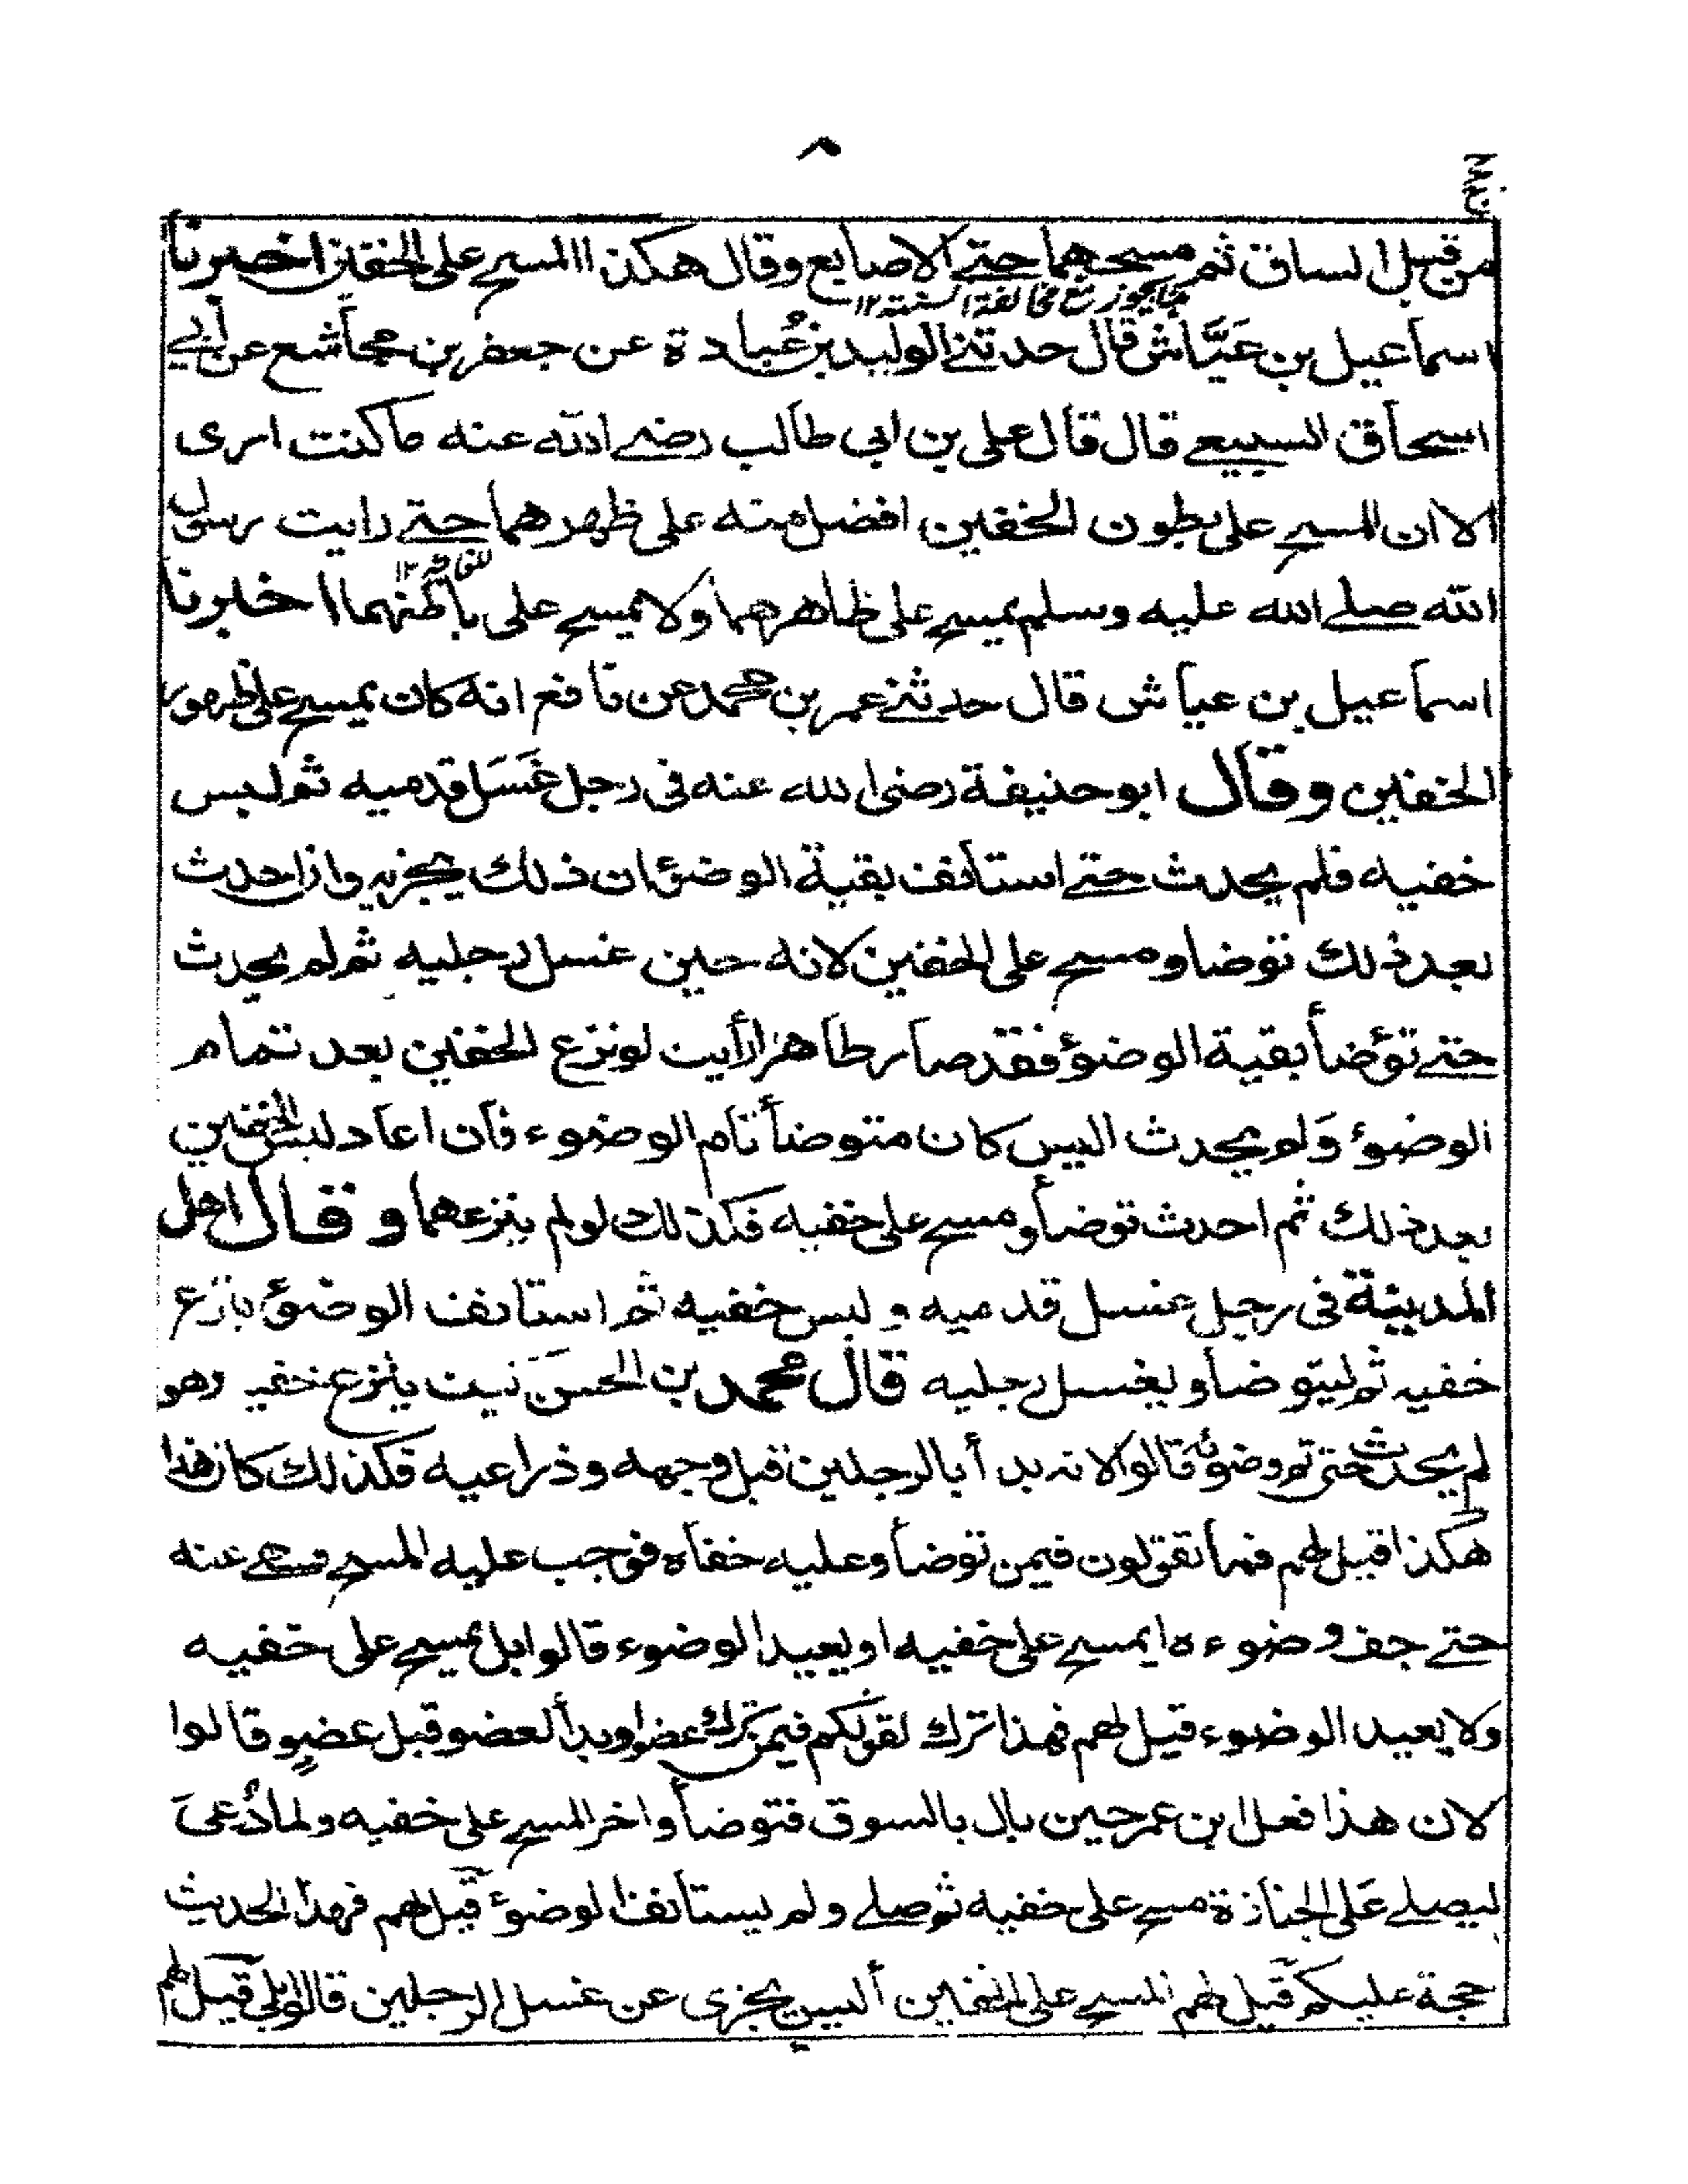 ٨
من قبل الساق ثم مسحهما حتے الاصابع وقال هكذا المسح على الخفين اخبرنا
اسماعيل بن عَيَّاش قال حدثنے الوليد بن عُبادة عن جعفر بن مجاشع عن أبے
اسحاق السبيعے قال قال على بن ابى طالب رضے الله عنه ما كنت ارى
الا ان المسح على بطون الخفين افضل منه على ظهرهما حتے رايت رسول
الله صلے الله عليه وسلم يمسح على ظاهرهما ولا يمسح على باطنهما اخبرنا
اسماعيل بن عياش قال حدثنے عمر بن محمد عن نافع انه كان يمسح على ظهور
الخفين وقال ابو حنيفة رضى الله عنه فى رجل غَسَل قدميه ثم لبس
خفيه فلم يحدث حتے استانف بقية الوضؤ ان ذلك يجزيه واذا احدث
بعد ذلك توضا ومسح على الخفين لانه حين غسل رجليه ثم لم يحدث
حتے توضأ بقية الوضوؤ فقد صار طاهرا أرأيت لو نزع الخفين بعد تمام
الوضوؤ وَلم يحدث اليس كان متوضأ تام الوضوء فان اعاد لبس الخفين
بعد ذلك ثم احدث توضأ ومسح على خفيه فكذلك لو لم ينزعهما وقال اهل
المدينة فى رجل غسل قدميه و لبس خفيه ثم استانف الوضوؤ ينزع
خفيه ثم ليتوضأ ويغسل رجليه قال محمد بن الحسن كيف ينزع خفيه وهو
لم يحدث حتى تم وضوئه قالوا لانه بدأ بالرجلين قبل وجهه وذراعيه فكذلك كان هذا
هكذا قيل لهم فما تقولون فيمن توضأ وعليه خفاه فوجب عليه المسح فسهے عنه
حتے جف وضوءه ايمسح على خفيه او يعيد الوضوء قالوا بل يمسح على خفيه
ولا يعيد الوضوء قيل لهم فهذا ترك لقولكم فيمن ترك عضوا وبدأ لعضو قبل عضوٍ قالوا
لان هذا فعل ابن عمر حين بال بالسوق فتوضأ واخر المسح على خفيه ولما دُعىَ
ليصلے عَلى الجنازة مسح على خفيه ثم صلے ولم يستانف الوضوؤ قيل لهم فهذا الحديث
حجة عليكم قيل لهم المسح على الخفين أليس يجزى عن غسل الرجلين قالوا بلى قيل لهم